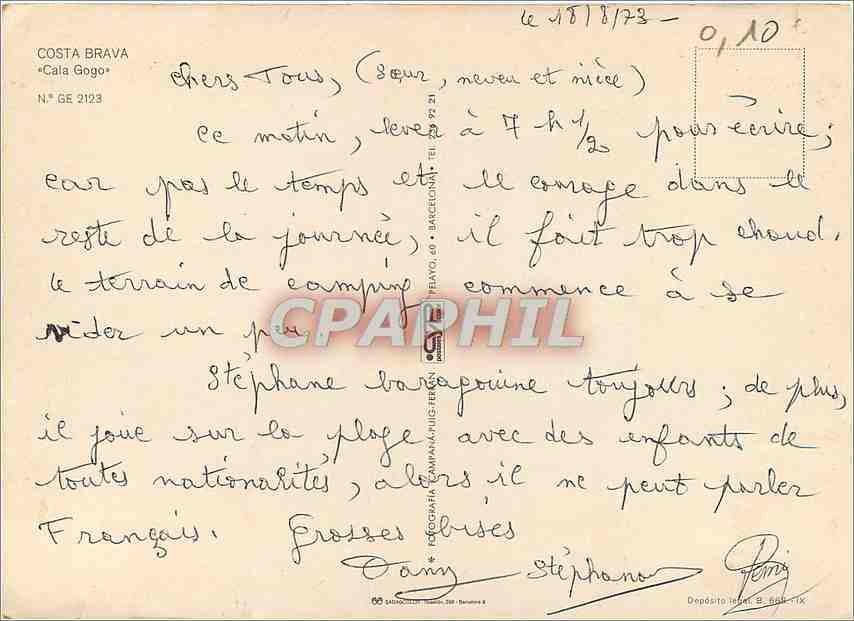 le 18/8/73 -
0,10
COSTA BRAVA
«Cala Gogo»
N.° GE 2123
chers Tous, (sœur, neveu et nièce)
ce matin, lever à 7 h 1/2 pour écrire;
car pas le temps et le courage dans le
reste de la journée, il fait trop chaud.
le terrain de camping commence à se
vider un peu.
Stéphane baragouine toujours; de plus,
il joue sur la plage avec des enfants de
toutes nationalités, alors il ne peut parler
Français. Grosses bises
Dany Stéphane Rémy
* FOTOGRAFIA CAMPAÑÁ-PUIG-FERRÁN PELAYO, 60 • BARCELONA • TEL. 226 92 21
CYP
postales
CPAPHIL
Depósito legal, B. 668.-IX